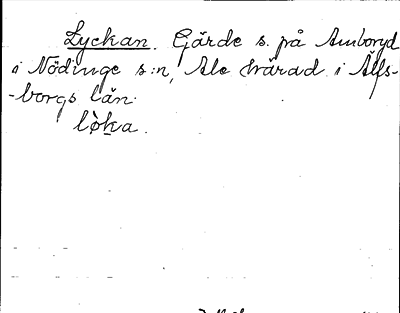 Lyckan. Gärde s. på Amboryd
i Nödinge s:n, Ale härad i Älfs-
-borgs län.
lò̱ka.